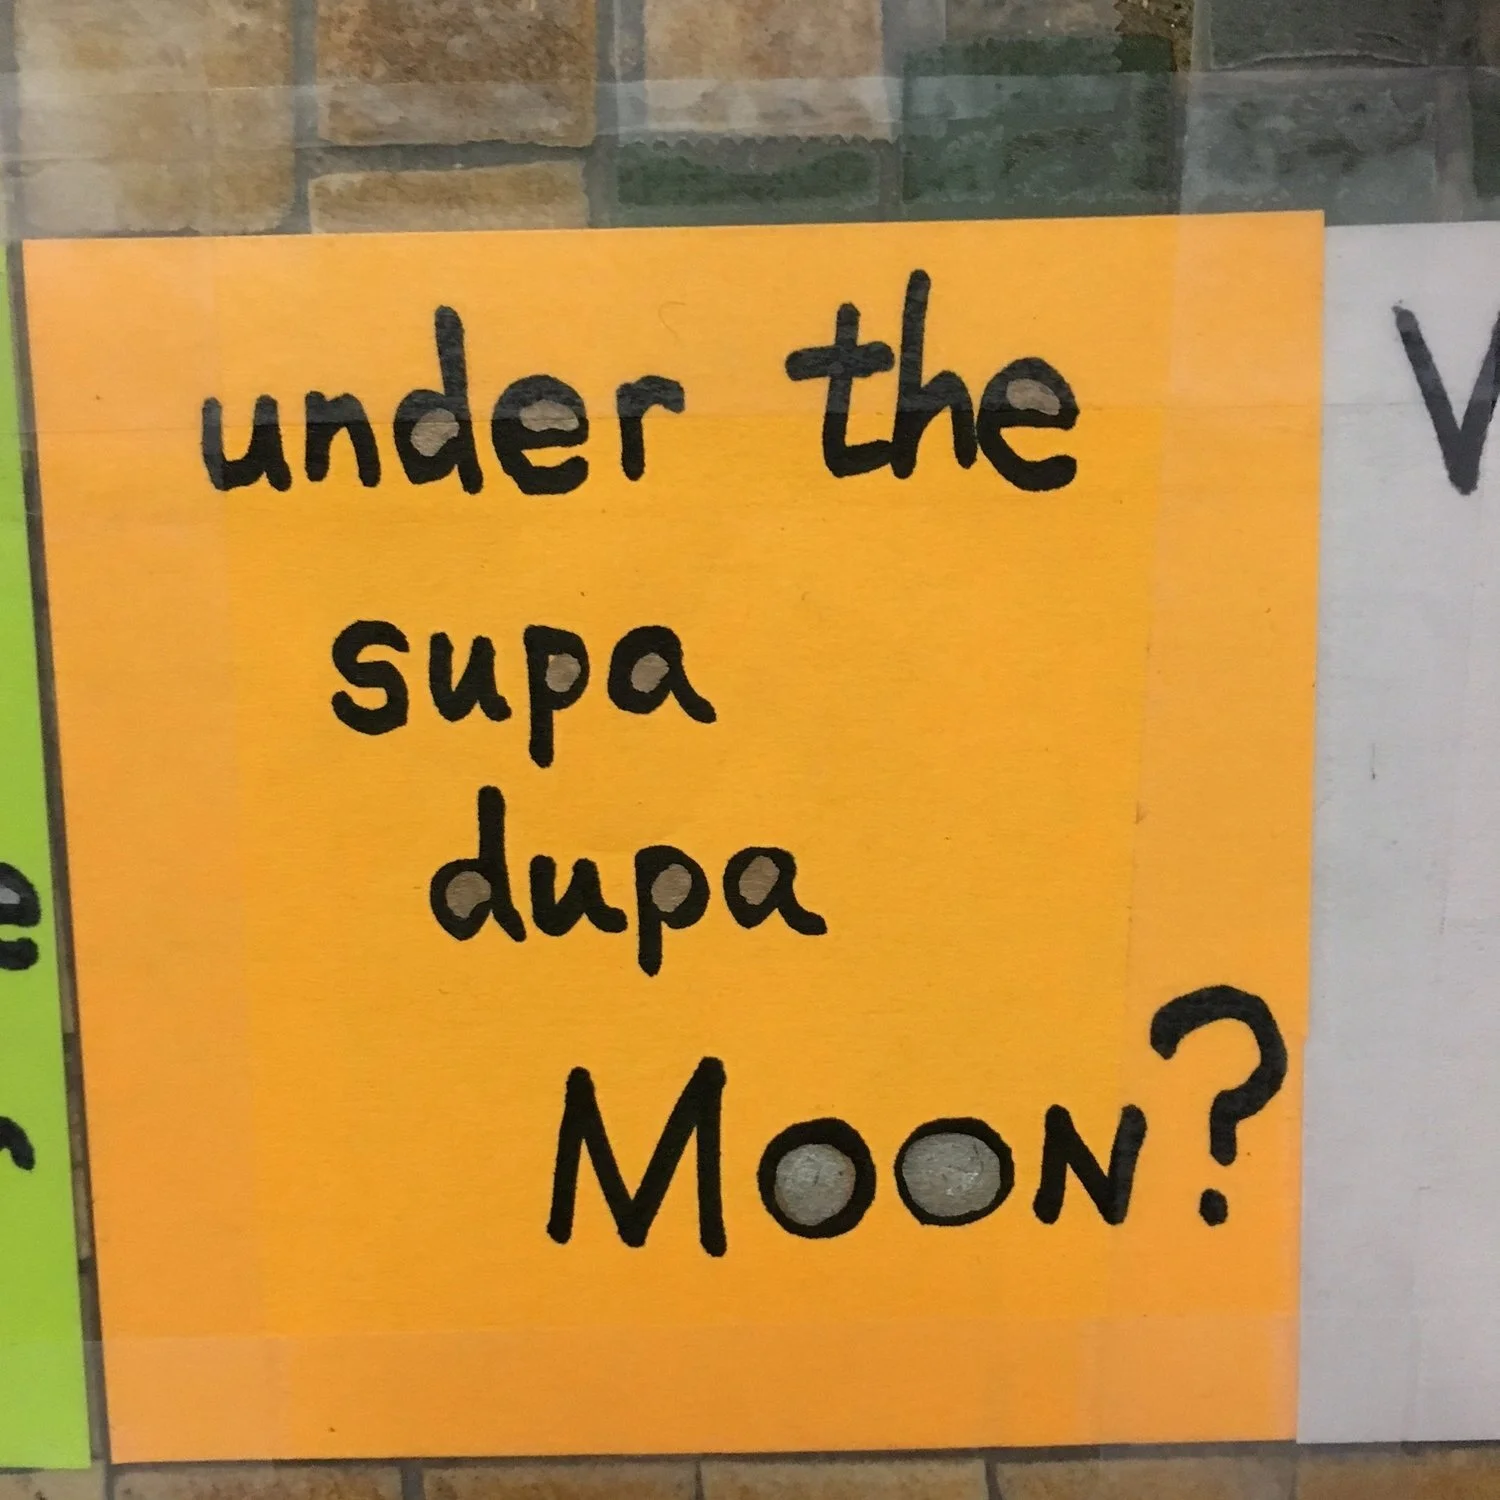 under the
supa
dupa
MOON?